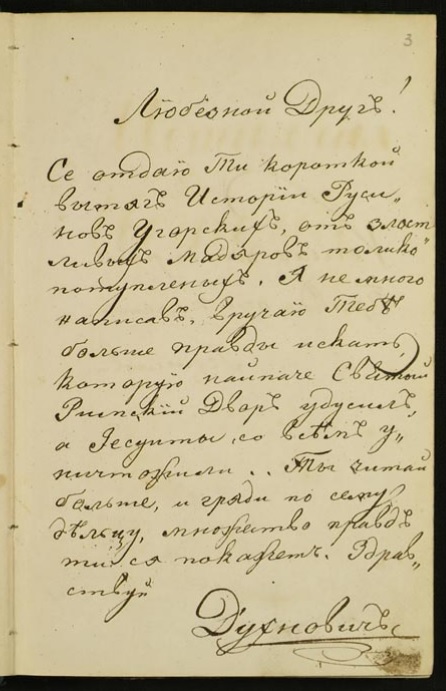 3
Любезной Другъ!
Се отдаю Ти короткой
вытягъ Исторіи Руси„
новъ Угорскихъ, отъ злост
ливыхъ Мадяровъ толико
потупленыхъ. Я не много
написавъ, вручаю Тебѣ
больше правды искать,
которую найпаче Святый
Римскій Дворъ удусилъ,
а Іесуиты со всѣмъ у„
ничтожили.. Ты читай
больше, и гряди по сему
дѣльцу, множество правдъ
ти ся покажетъ. Здрав„
ствуй
Духновичъ